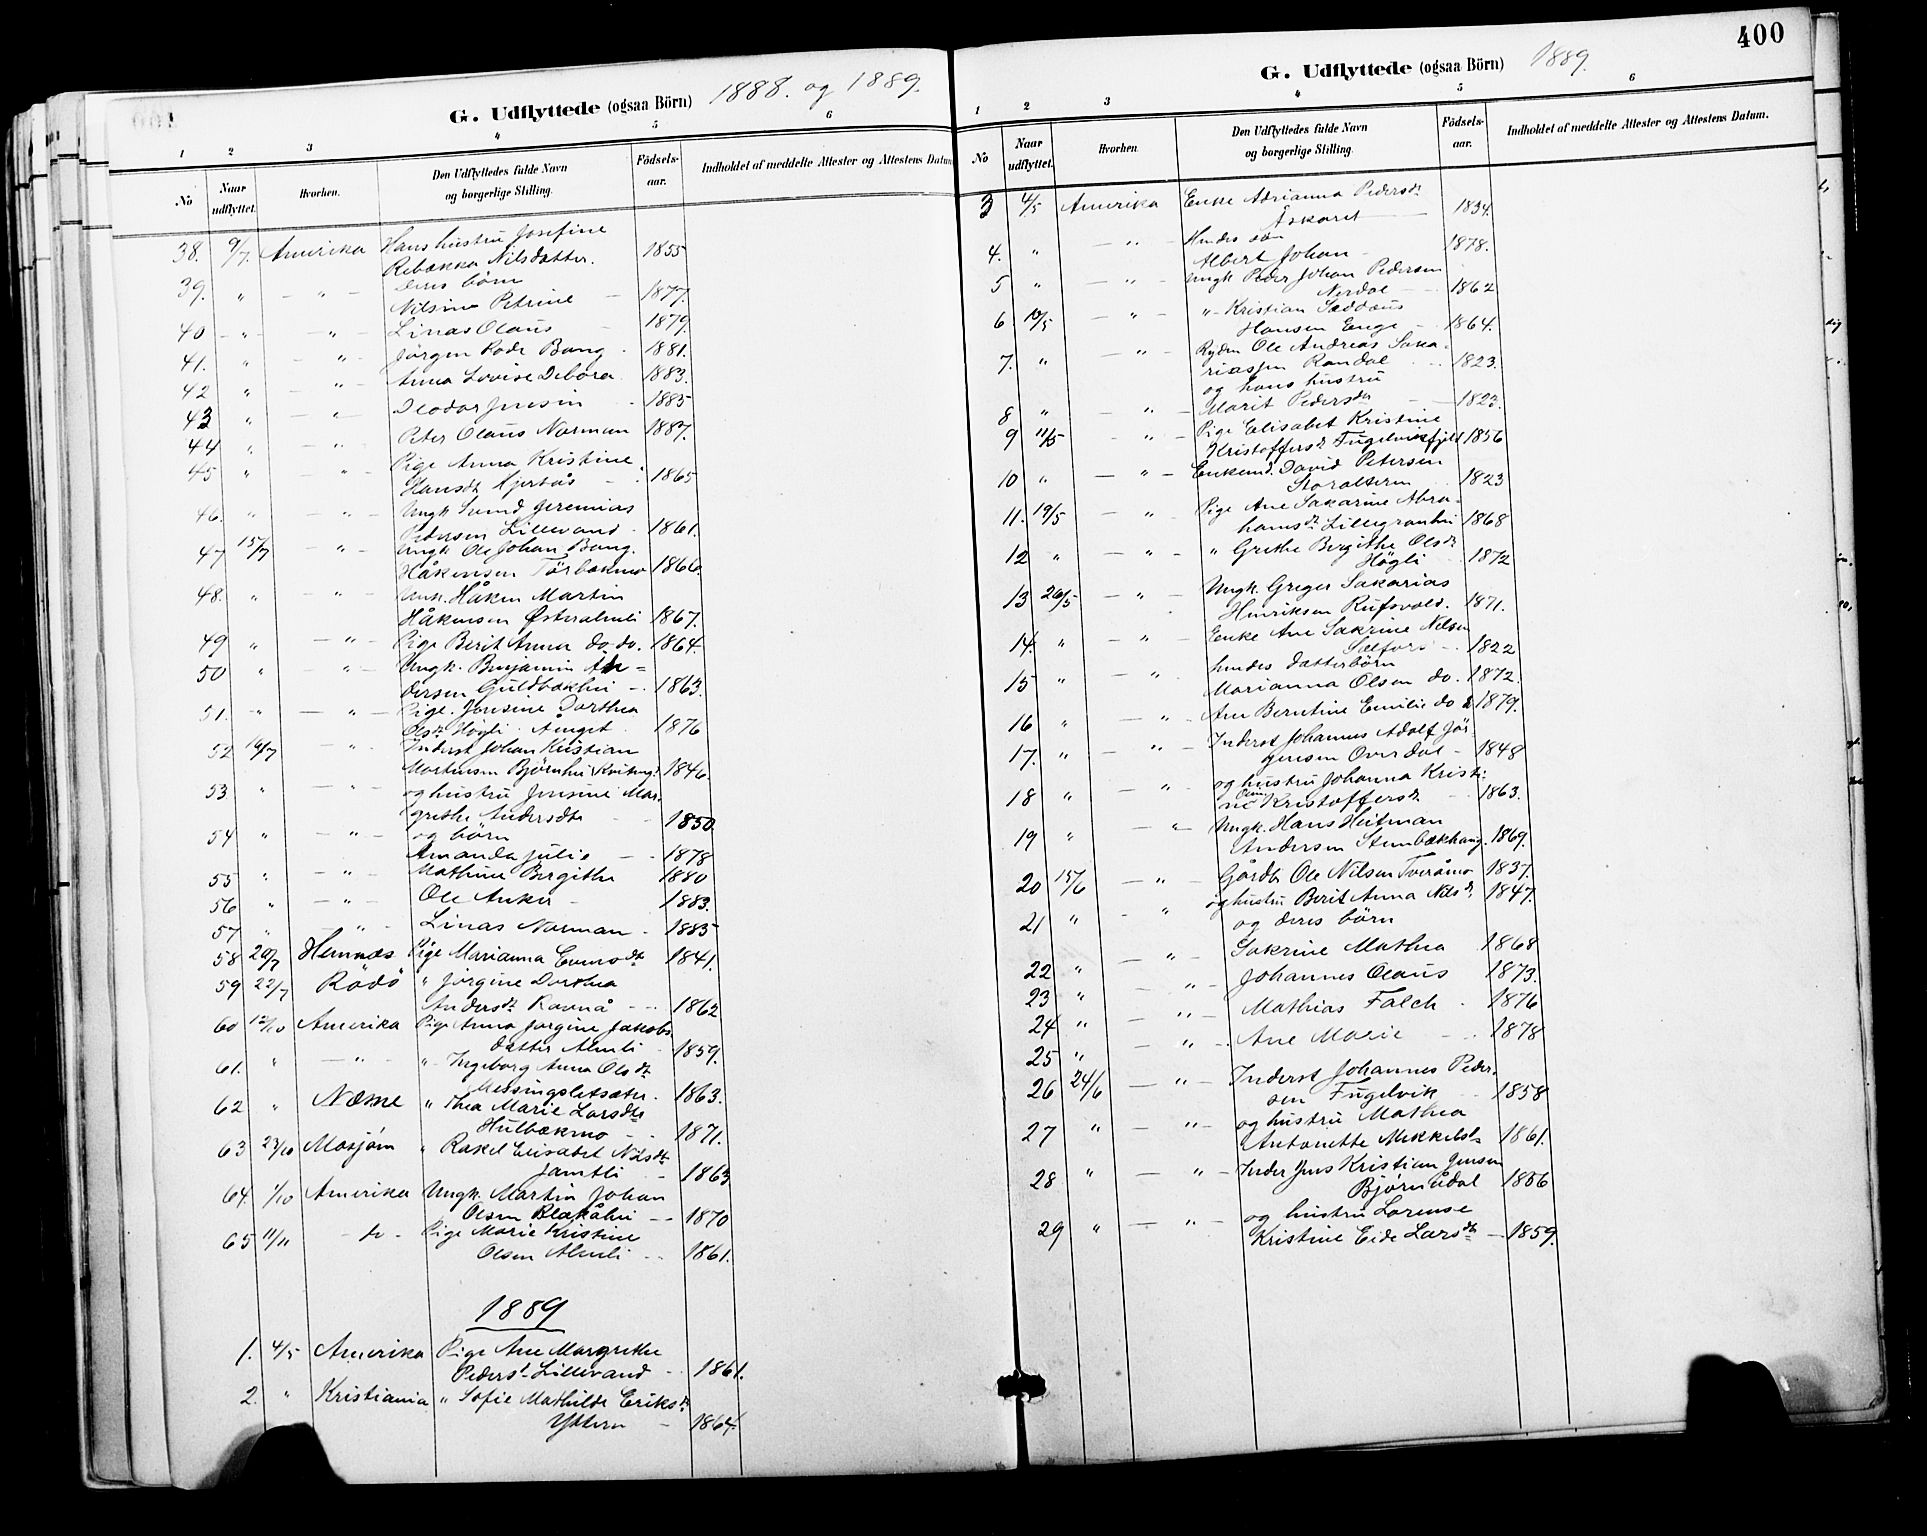 G. Udflyttede (ogsaa Börn) 1888. og 1889.
1 2 3 4 5 6
No Naar udflyttet. Hvorhen. Den Udflyttedes fulde Navn og borgerlige Stilling. Födsels-aar. Indholdet af meddelte Attester og Attestens Datum
38. 9/7. Amerika Hans hustru Josefine
Rebekka Nilsdatter. 1855
39. " — " — Deres börn
Nilsine Petrine — 1877.
40 - " - — " Linas Olaus - 1879.
41. " — " - Jörgen Rode Bang - 1881.
42 " — " - Anna Lovise Debora. 1883.
43 " — " - Teodor Jensen - 1885
44 " — " - Peter Olaus Norman 1887.
45 " " - Pige Anna Kristine
Hansdt - 1865
46. " - " - Ungk Svend Jeremias
Pedersen Lillevand - 1861.
47 15/7 — " - Ungk Ole Johan Bang
Håkensen Törbekmo 1866.
48. " — " - Unk. Håken Martin
Håkensen Østeralmli 1867.
49 " — " - Pige Berit Anna do. do. 1864.
50 " " - Ungk. Benjamin An=
dersen Guldbækhei - 1863.
51. " — " — Pige. Jensine Dorthea
Olsdt Högli 1876
52 16/7 " - Inderst Johan Kristian
Martinsen Bjørnhei 1846.
53 " — " — og hustru Jensine Mar-
grethe Andersdtr - - 1850.
54 " — " — og börn
Amanda Julie - - 1878
55 " — " - Mathine Bergithe 1880
56 " — " - Ole Anker - 1883.
57 " - " - Linas Norman - 1885
58 20/7 Hemnæs Pige Marianna Evensdt 1841.
59 22/7 Rödö " Jörgine Dorthea
Andersdt Ravnå - - 1862
60 12/10 Amerika Pige Anna Jørgine Jakobs
datter Almli - 1859.
61. " — " — " Ingeborg Anna Olsdt
Messingsletsæter - 1863.
62 " Næsne " Thea Marie Larsdtr
Hulbækmo - - 1871.
63 23/10 Mosjøen " Rakel Elisabet Nilsdt
Jamtli - 1863
64. 1/10 Amerika Ungk. Martin Johan
Olsen Blakåhei - - 1870
65 11/11 - do - Pige Marie Kristine
Olsen Almli - - 1861.
1889
1. 4/5 Amerika Pige Ane Margrethe
Pedersdt Lillevand - 1861.
2. " Kristiania " Sofie Mathilde Eriksdt
Yttern - 1864.
400
G. Udflyttede (ogsaa Börn) 1889.
1 2 3 4 5 6
No Naar udflyttet. Hvorhen Den Udflyttedes fulde Navn og borgerlige Stilling. Födsels-aar. Indholdet af meddelte Attester og Attestens Datum.
3 4/5 Amerika Enke Adrianna Pedersdt
Åskaret 1834.
4. " — " — Hendes sön
Albert Johan - 1878.
5 " — " — Ungk Peder Johan Pedersen
Nerdal - - 1862
6 10/5 — " " - Kristian Taddæus
Hansen Enge - 1864.
7. " — " — Ole Andreas Saka-
riassen Randal - - 1823.
og hans hustru
8 " — " - Marit Pedersdtr - -
9 11/5 - " - Pige Elisabet Kristine
Kristoffersdt Fugelviksfjeld 1856
10 " — " — Enkemd. David Petersen
Storalteren 1823
11. 19/5 — " Pige Ane Sakarine Abra-
hamsdt Lillegranhei 1868
12 " — " — " Grethe Bergithe Olsdt
Högli 1872
13 26/5 — " — Ungk. Greger Sakarias
Henriksen Rufsvold. 1871.
14. " " — Enke Ane Sakrine Nilsen
Selfors - - 1822
15 " — " . hendes datterbörn
Marianna Olsen do. 1872.
16 " — " — Ane Berntine Emilie do 1879.
17. " — " — Inderst Johannes Adolf Jör-
gensen Overdal - 1848
18 " — " — og hustru Johanna Kristi-
ne Oline Kristoffersdt - 1863.
19 " " - Ungk. Hans Heitman
Andersen Stenbækhaug. 1869.
20 15/6 — " — Gårdb. Ole Nilsen Tveråmo 1837.
21 " - " og hustru Berit Anna Nilsdt. 1847.
og deres börn
22 " — " — Sakrine Mathea 1868
23 " — " - Johannes Olaus 1873.
24 " — " - Mathias Falch - 1876
25 " — " - Ane Marie - - 1878
26 24/6 — " — Inderst Johannes Peder-
sen Fugelvik - - 1858
27 " — " - og hustru Mathea
Antonette Mikkelsdtr 1861.
28 " — " — Inder Jens Kristian Jensen
Bjørnådal 1856
29 " — " — og hustru Lorense
Kristine Eide Larsdt - 1859.